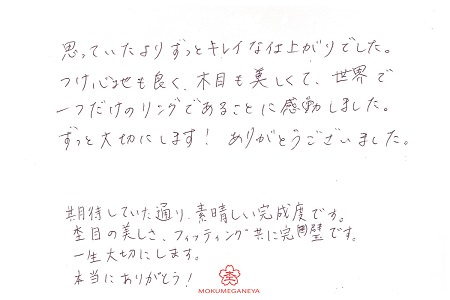 思っていたよりずっとキレイな仕上がりでした。
つけ心地も良く、木目も美しくて、世界で
一つだけのリングであることに感動しました。
ずっと大切にします！ ありがとうございました。
期待していた通り、素晴しい完成度です。
杢目の美しさ、フィッティング共に完璧です。
一生大切にします。
本当にありがとう！
MOKUMEGANEYA